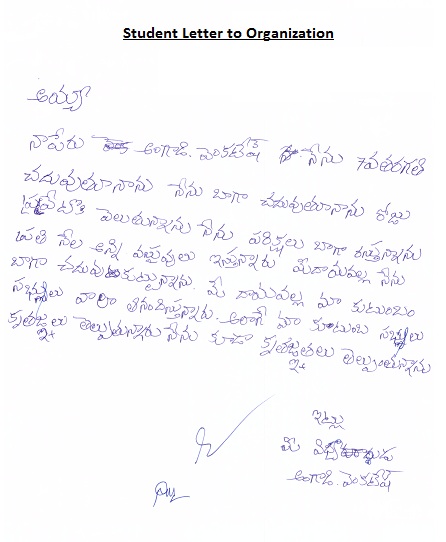 Student Letter to Organization
అయ్యా
నాపేరు అంగాడి. వెంకటేష్ నేను 7వతరగతి
చదువుతూనాను నేను బాగా చదువుతూనాను రోజు
వెలుతున్నాను నేను పరిక్షలు బాగా రస్తున్నాను
ప్రతి నెల అన్ని వస్తువులు ఇస్తున్నారు మీదాయవల్ల నేను
బాగా చదువుకుంటున్నాను. మీ దాయవల్ల మా కుటుంబం
సభ్యులు చాలా ఆనందిస్తున్నారు. అలాగే మా కుటుంబ సభ్యులు
కృతజ్ఞతలు తెల్పుతున్నారు నేను కూడా కృతజ్ఞతలు తెల్పుంతున్నాను
ఇట్లు
మీ
అంగాడి. వెంకటేష్